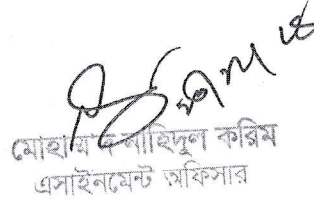 মোহাম্মদ নাহিদুল করিম
এসাইনমেন্ট অফিসার